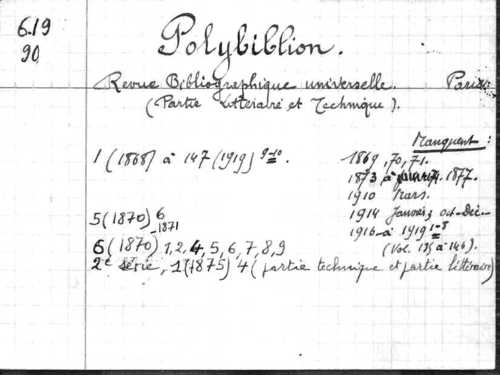 6.19
90
Polybiblion.
Revue Bibliographique universelle. Paris
(Partie Littéraire et Technique).
Manquent:
1 (1868) à 147 (1919) 9-10.
1869, 70, 71.
1873 à 1877.
1910 Mars.
1914 Janvier, oct-Déc-
1916 à 1919 1-8
(Vol. 135 à 146).
5 (1870) 6
-1871
6 (1870) 1, 2, 4, 5, 6, 7, 8, 9
2e série, 1 (1875) 4 (partie technique et partie littéraire)